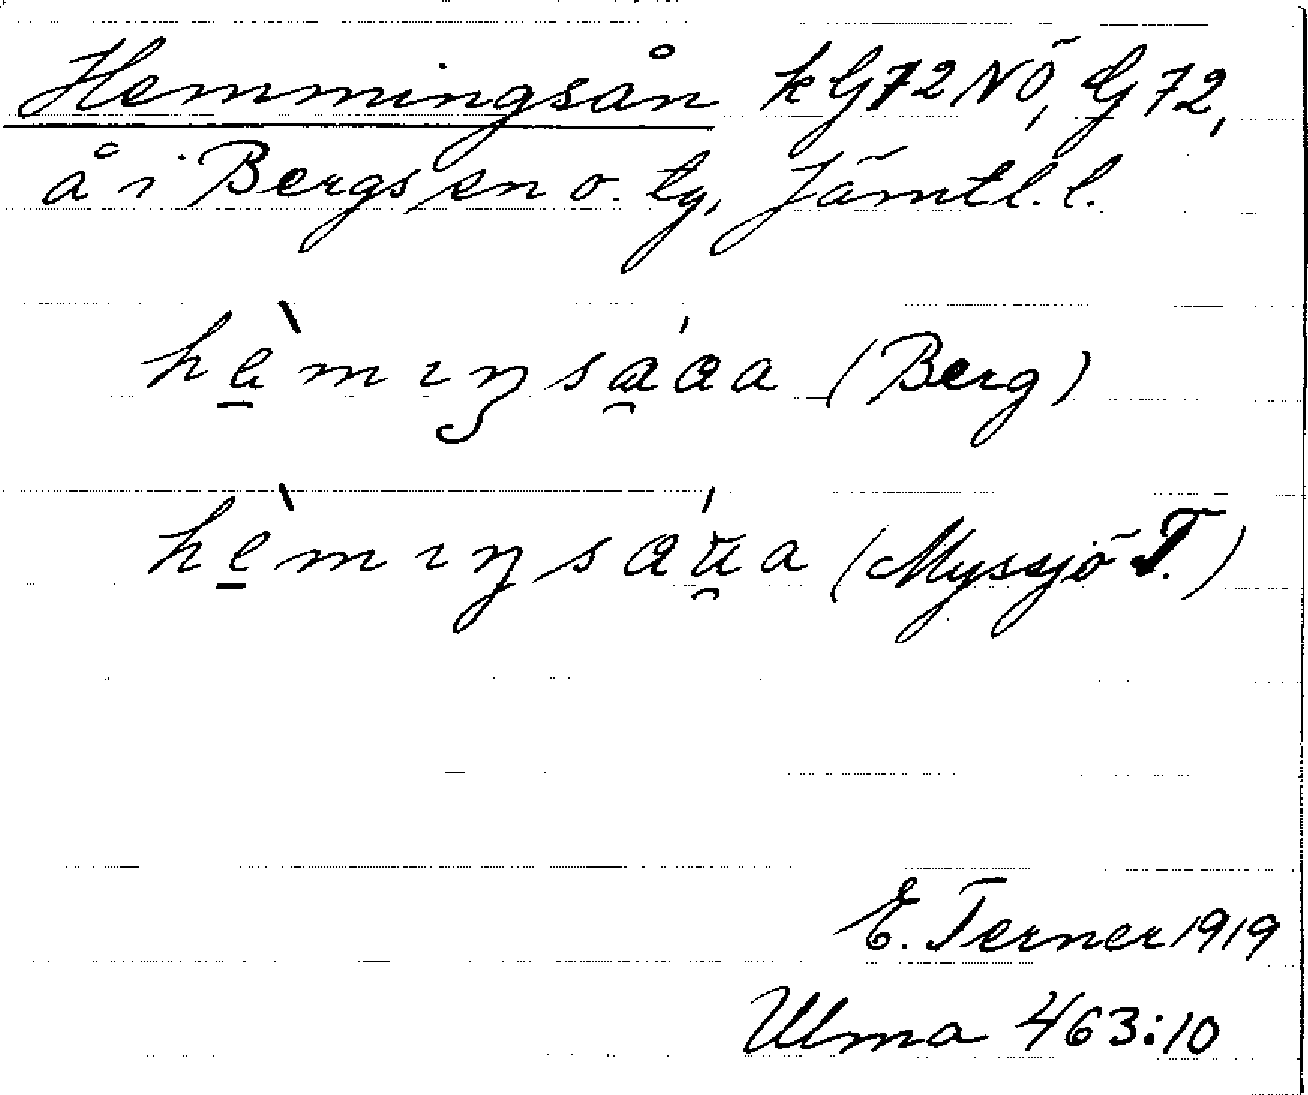 Hemmingsån k G72 NÖ, G 72,
å i Bergs sn o. tg, Jämtl. l.
hè̱mıŋsa̯´aa (Berg)
hè̱mıŋsáa̯a (Myssjö T.)
E. Terner 1919
Ulma 463:10